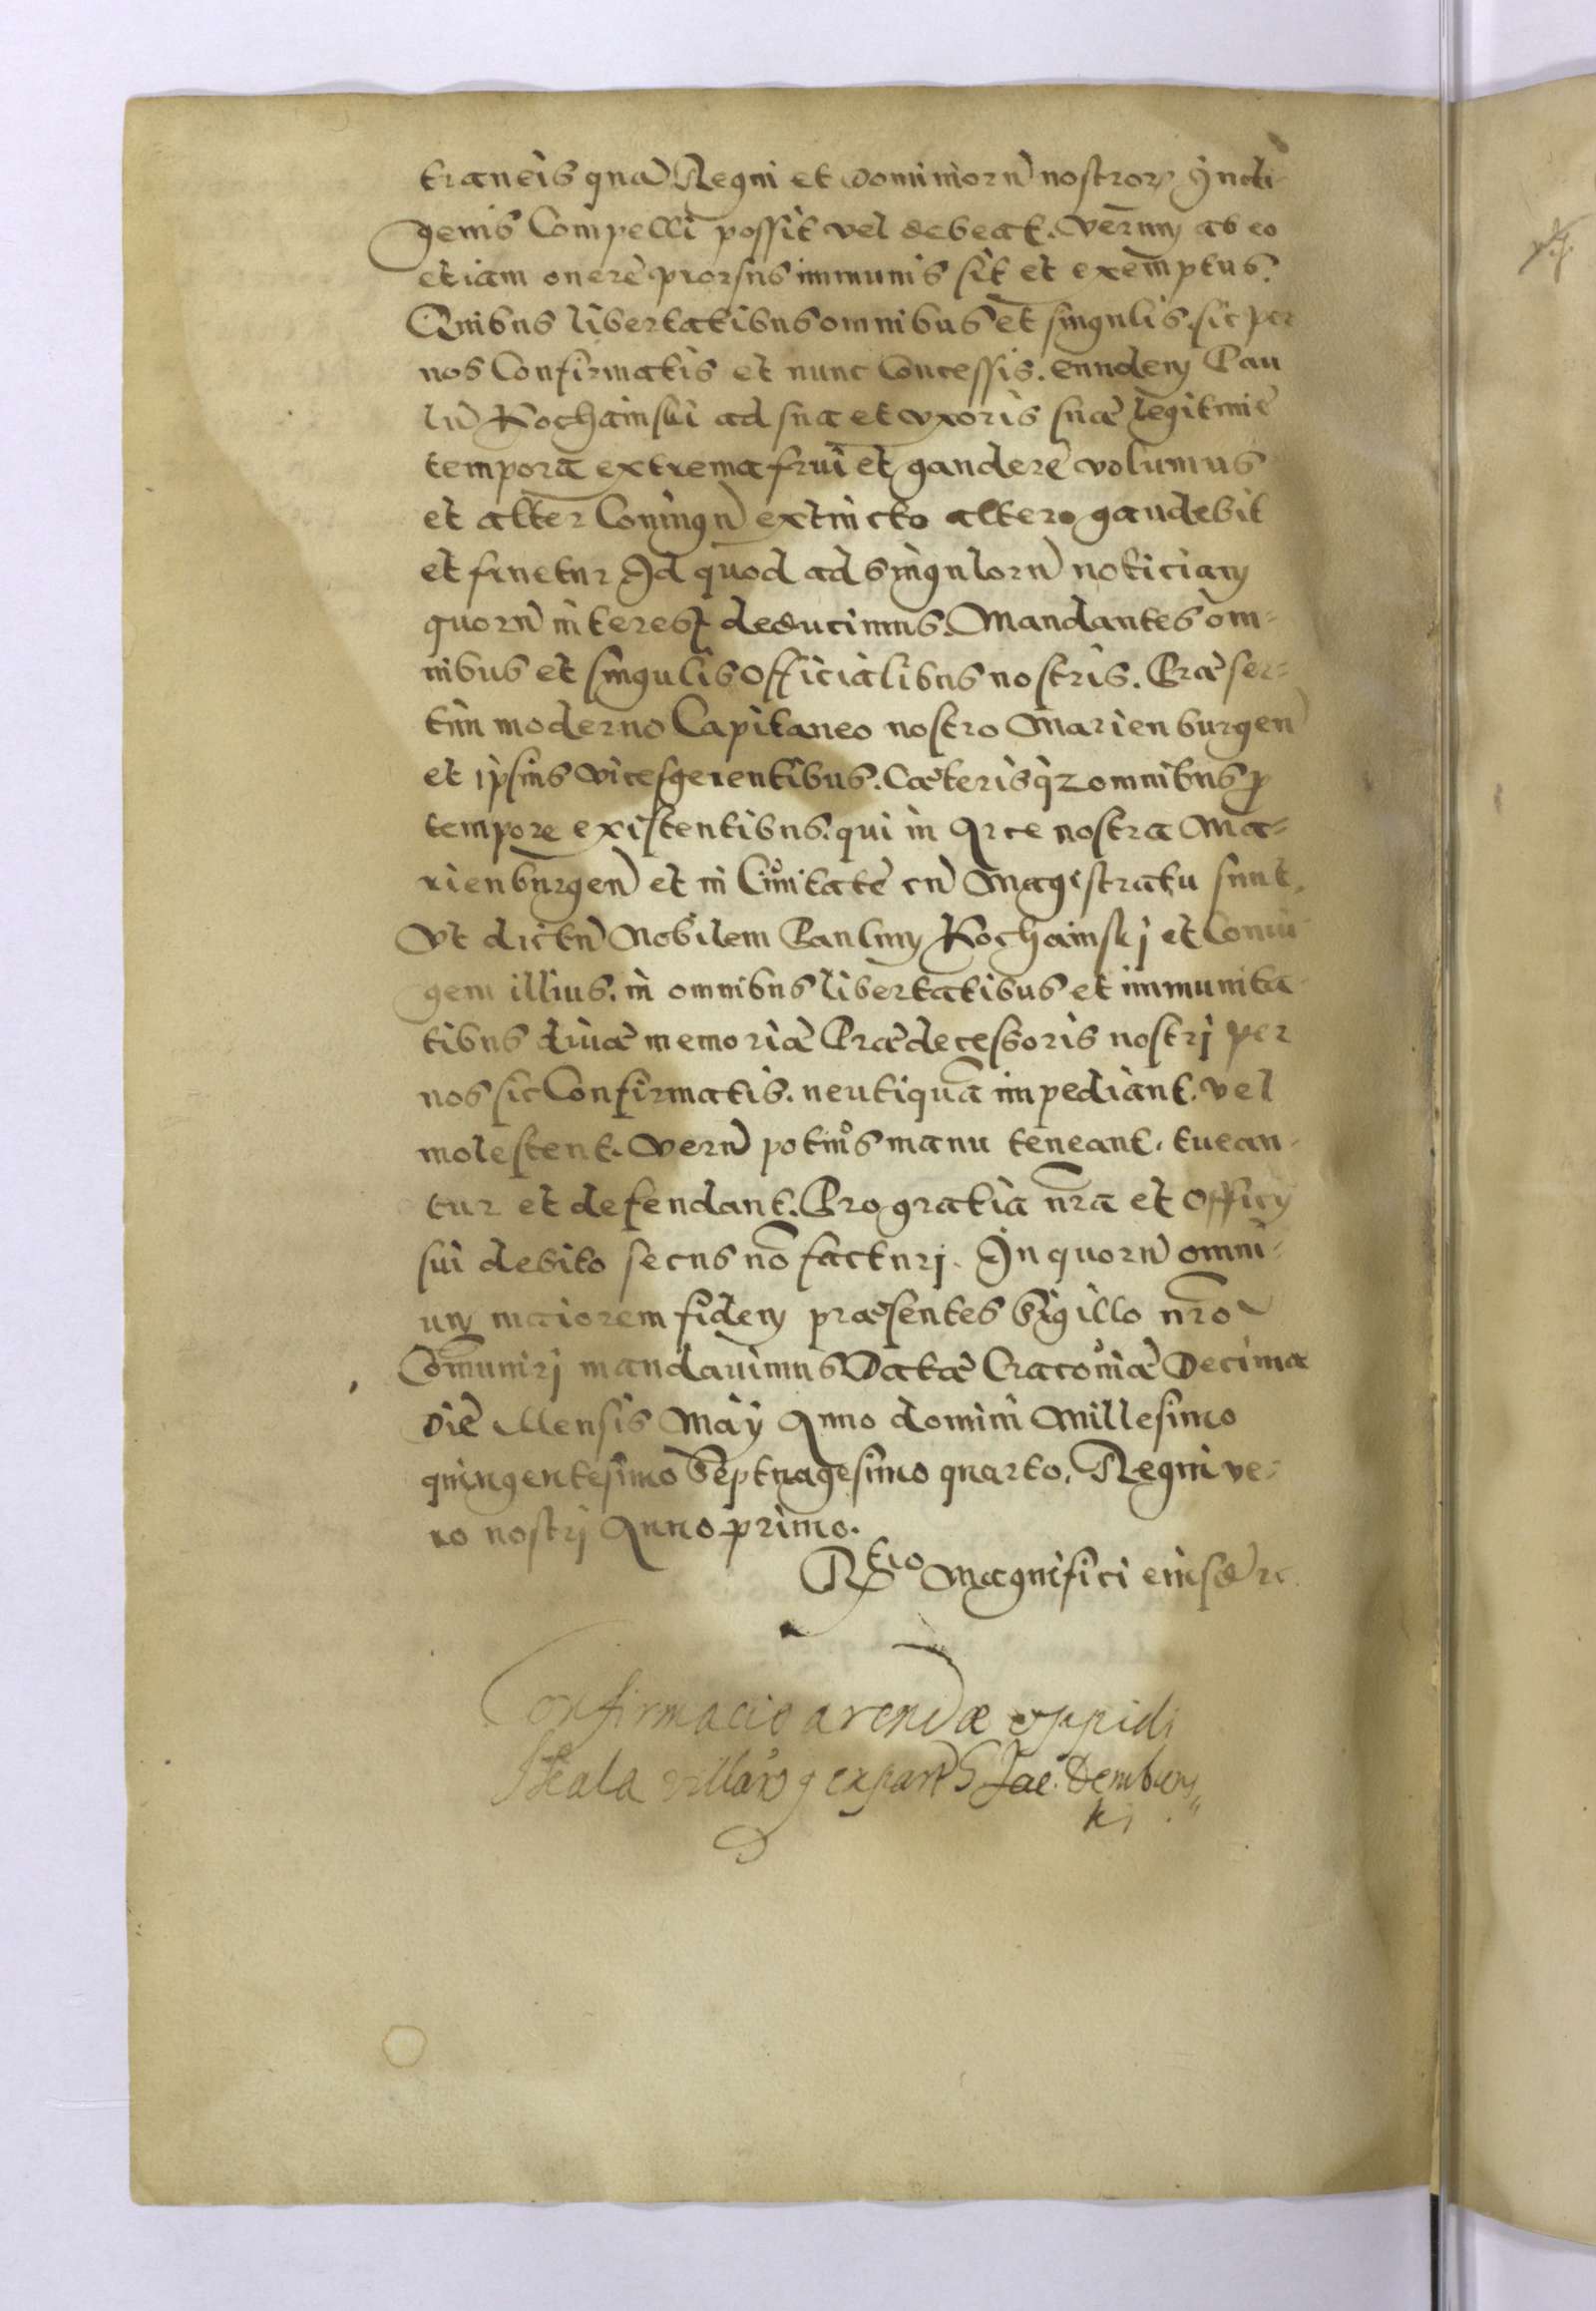 traneis quā Regni et dominiorū nostror₎ Jndi-
genis Compelli possit vel debeat. Verum ab eo
etiam onere prorsus immunis sit et exemptus.
Quibus libertatibus omnibus et singulis, sic per
nos Confirmatis et nunc Concessis. eundem Pau
lū Kochainski ad sua et vxoris suæ legitimæ
tempora extrema frui et gaudere volumus
et alter Coniugū extincto altero gaudebit
et fruetur Id quod ad singulorū noticiam
quorū interest deducimus. Mandantes om-
nibus et singulis Officialibus nostris. Præser-
tim moderno Capitaneo nostro Marienburgen̄
et ipsius vicesgerentibus. Cæterisqz omnibus p̄
tempore existentibus. qui in Arce nostra Ma-
rienburgen̄ et in Ciuitate cū Magistratu sunt,
Vt dictū Nobilem Paulum Kochainskj et Coniu
gem illius. in omnibus libertatibus et immunita-
tibus diuæ memoriæ Prædecessoris nostrj per
nos sic Confirmatis. neutiquā impediant. vel
molestent. Verū potius manu teneant, tuean-
tur et defendant. Pro gratia nr̄a et Officij
sui debito secus nō facturj. In quorū omni-
um maiorem fidem præsentes Sigillo nr̄o
Com̄unirj mandauimus Datæ Cracouiæ Decima
die Mensis Maij Anno domini Millesimo
quingentesimo Septuagesimo quarto. Regni ve-
ro nostrj Anno primo.
Rtio Magnifici eiusd̄ rc
Confirmacio arendæ oppidi
Skala villar₎ ex part G Jac. Dembiens„
ki